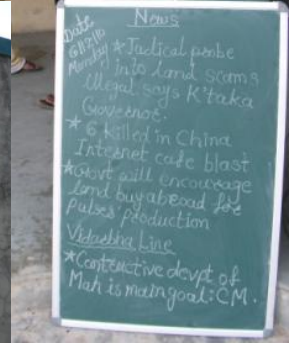 News
Date
6/12/10
Monday
* Judicial probe
into land scams
illegal says K'taka
Governor.
* 6 killed in China
Internet cafe blast
* Govt will encourage
land buy abroad for
pulses' production
Vidarbha Line
* Contructive devpt of
Mah is main goal: CM.